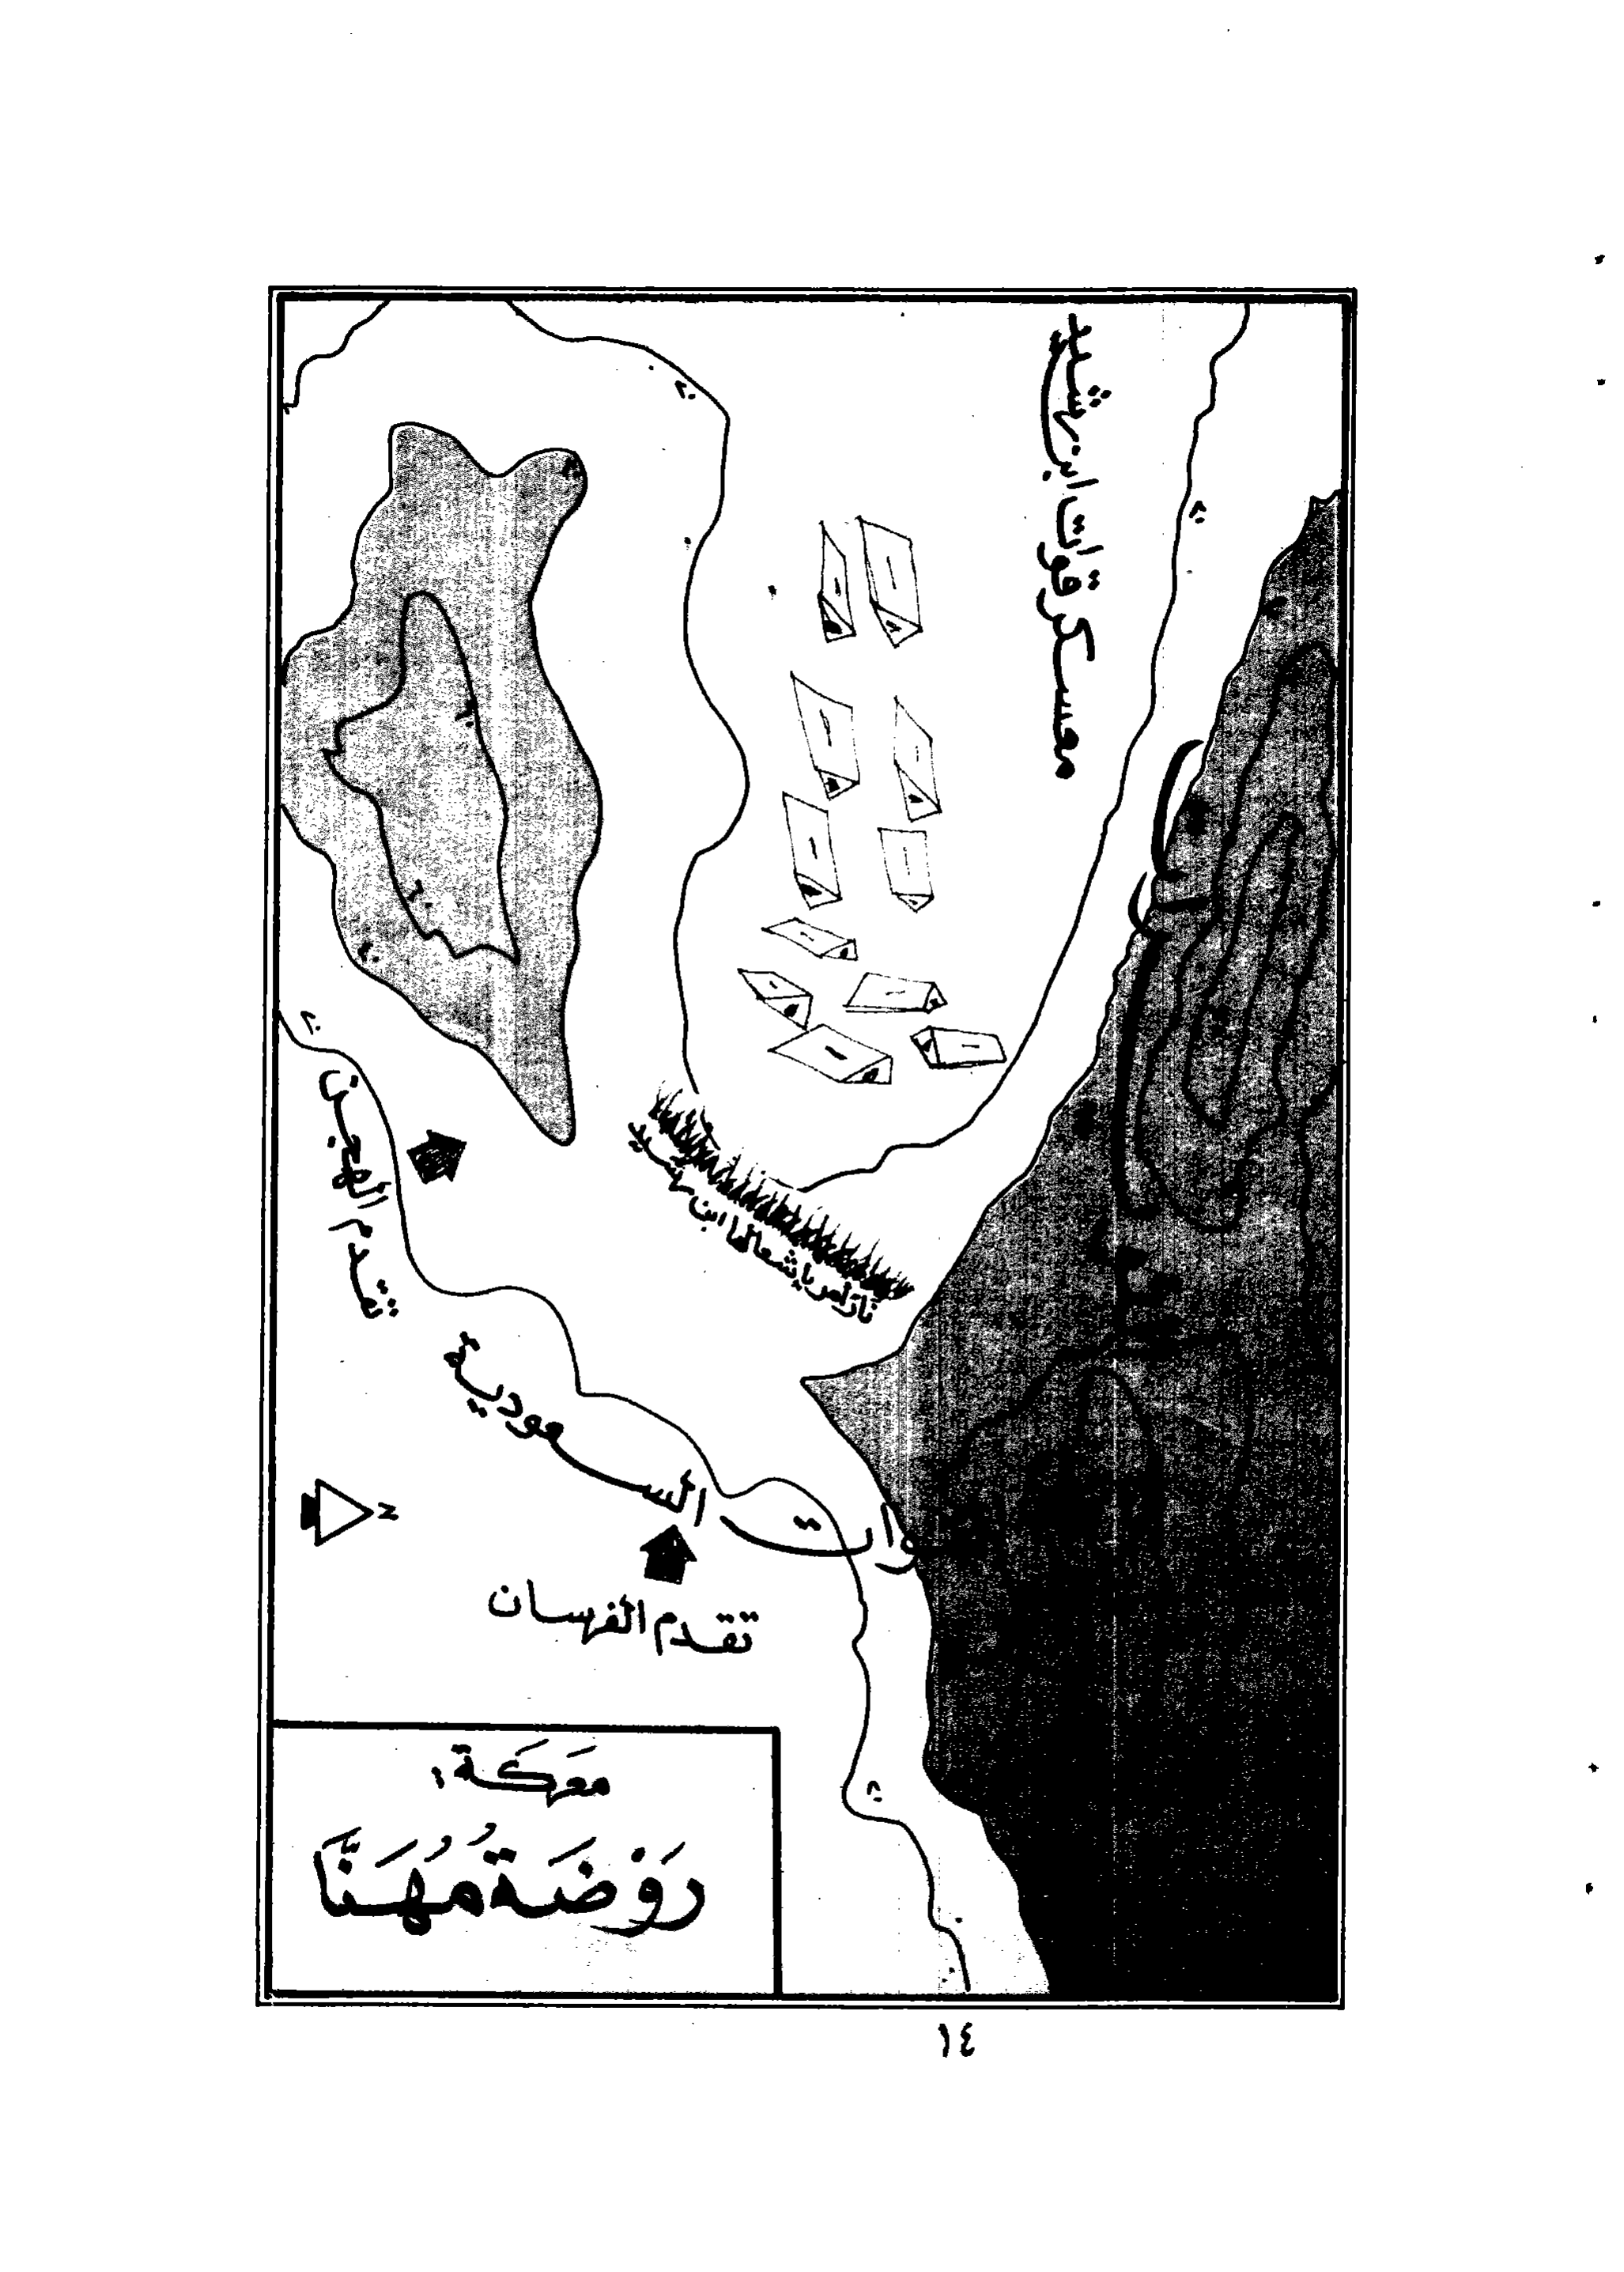 معسكر قوات ابن رشيد
نار أمر بإشعالها ابن رشيد
تقدم الهجن
قوات السعودية
N
تقدم الفرسان
معركة:
رَوْضَة مُهَنَّا
١٤